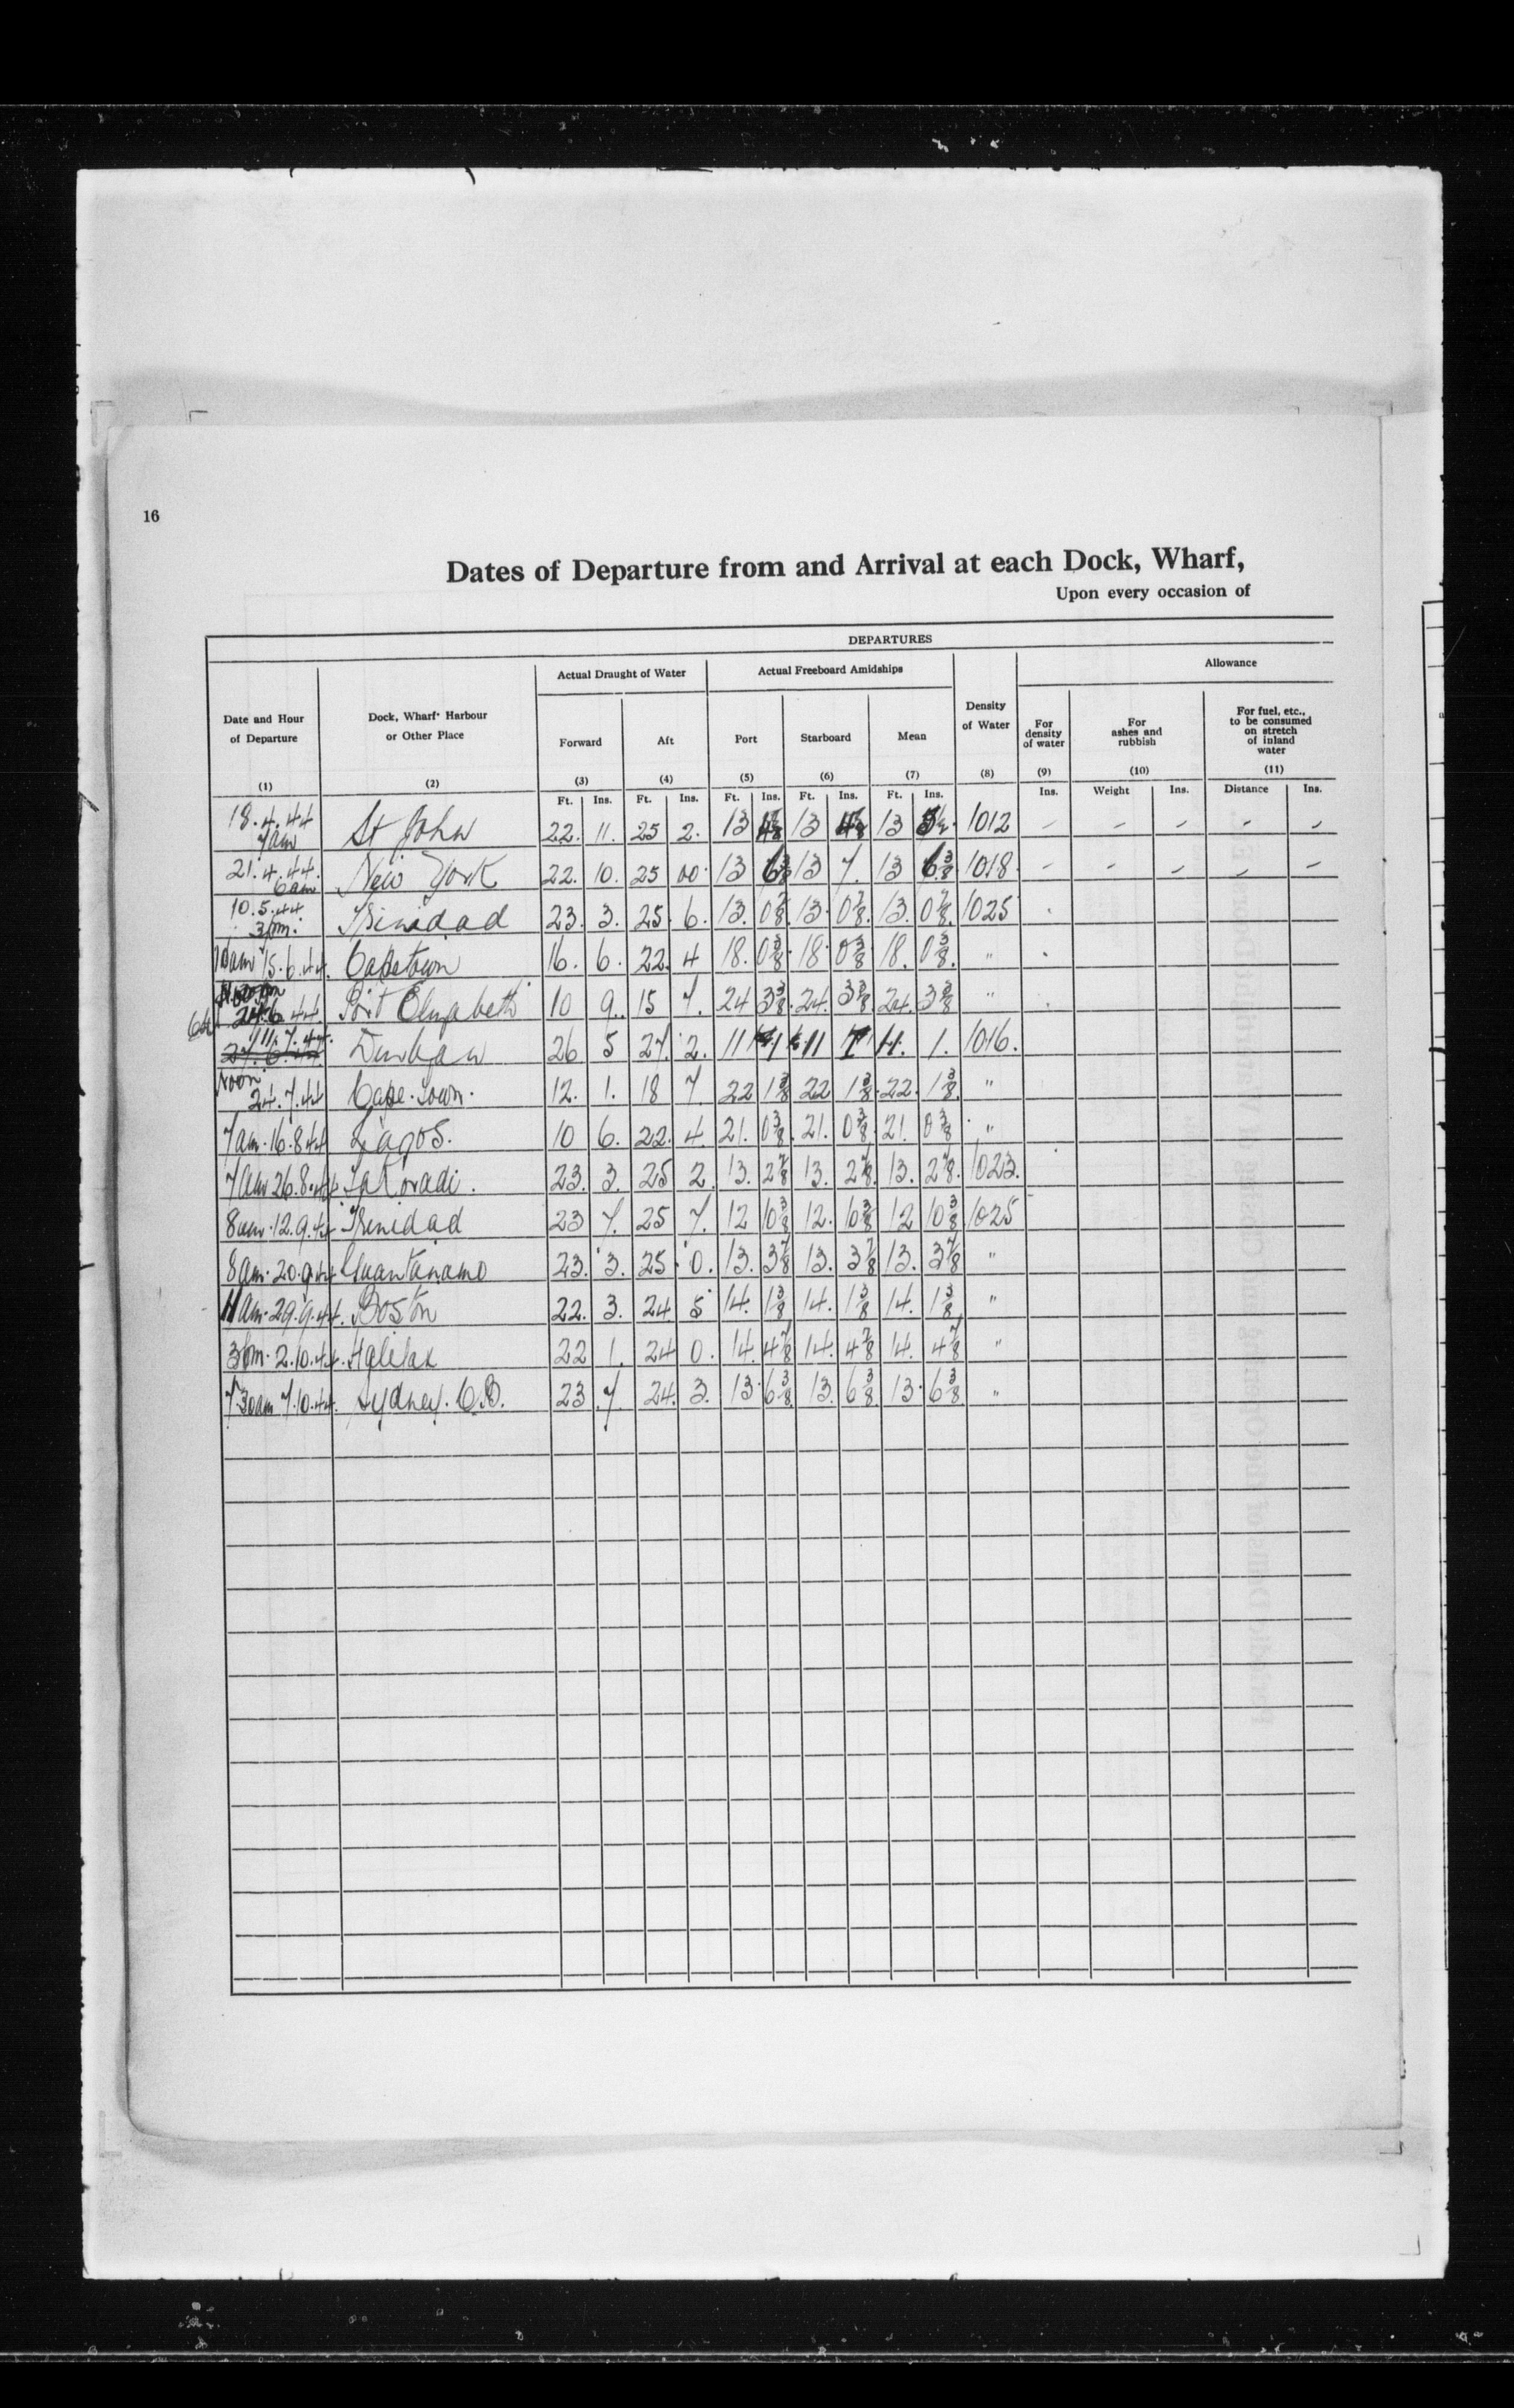 16
Dates of Departure from and Arrival at each Dock, Wharf,
Upon every occasion of
DEPARTURES
Actual Draught of Water Actual Freeboard Amidships Allowance
Date and Hour of Departure Dock, Wharf, Harbour or Other Place Forward Aft Port Starboard Mean Density of Water For density of water For ashes and rubbish For fuel, etc., to be consumed on stretch of inland water
(1) (2) (3) (4) (5) (6) (7) (8) (9) (10) (11)
Ft. Ins. Ft. Ins. Ft. Ins. Ft. Ins. Ft. Ins. Ins. Weight Ins. Distance Ins.
18.4.44 7am St John 22. 11. 25 2. 13 13 13 1012 - - - - -
21.4.44. 6am New York 22. 10. 25 00. 13 6 3/8 13 7. 13 6 3/8 1018 - - - - -
10.5.44 3pm. Trinidad 23. 3. 25. 6. 13. 0 7/8. 13. 0 7/8. 13. 0 7/8. 1025
10am 15.6.44. Capetown 16. 6. 22. 4 18. 0 3/8. 18. 0 3/8. 18. 0 3/8. "
24.6.44 Port Elizabeth 10 9. 15 7. 24 3 3/8. 24. 3 3/8. 24. 3 3/8 "
11.7.44. Durban 26 5 27. 2. 11 1 11 1 11. 1. 1016.
Noon 24.7.44 Cape. Town. 12. 1. 18 7. 22 1 3/8 22 1 3/8. 22. 1 3/8. "
7am. 16.8.44 Lagos. 10 6. 22. 4. 21. 0 3/8. 21. 0 3/8. 21. 0 3/8 "
7am 26.8.44 Takoradi. 23. 3. 25 2. 13. 2 7/8 13. 2 7/8. 13. 2 7/8. 1023.
8am. 12.9.44 Trinidad 23 7. 25 7. 12 10 3/8 12. 10 3/8 12 10 3/8 1025
8am. 20.9.44 Guantanamo 23. 3. 25. 0. 13. 3 7/8 13. 3 7/8 13. 3 7/8 "
11am. 29.9.44. Boston 22. 3. 24 5 14. 1 3/8 14. 1 3/8 14. 1 3/8 "
3pm. 2.10.44. Halifax 22 1. 24 0. 14. 4 7/8 14. 4 7/8 14. 4 7/8 "
7 30am 7.10.44. Sydney. C.B. 23 7. 24. 3. 13. 6 3/8. 13. 6 3/8 13. 6 3/8 "